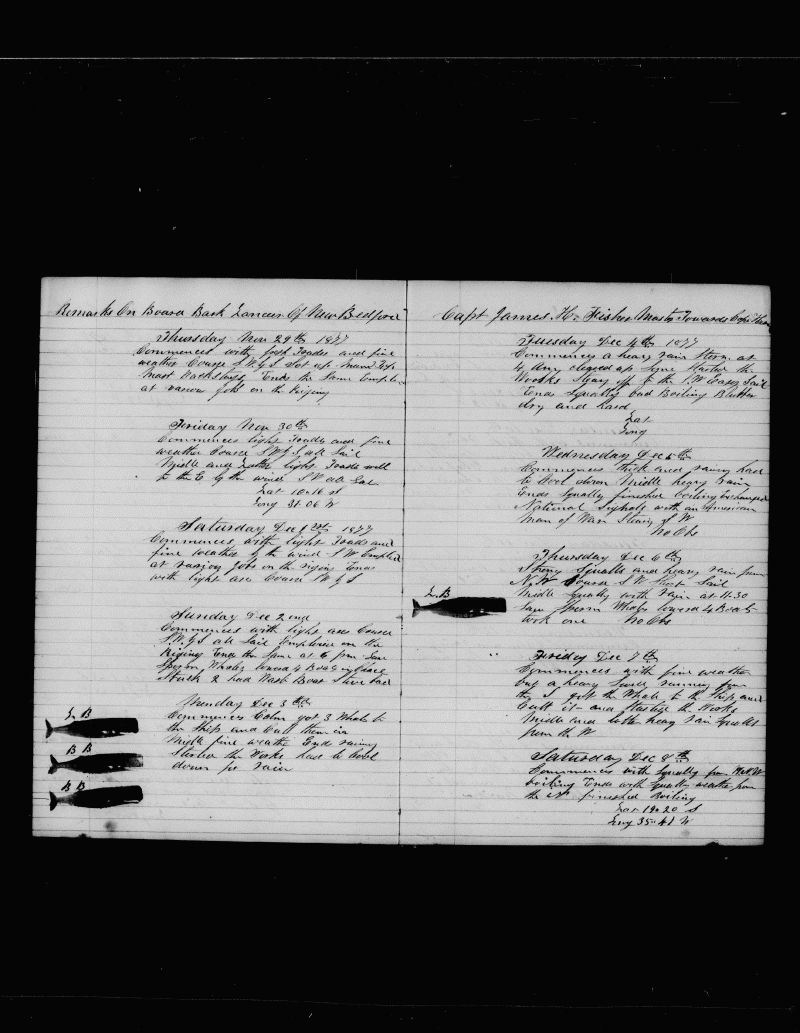 Remarks On Board Bark Lancer Of New Bedford
Thursday Nov 29th 1877
Commences with fresh Trades and fine
weather Course S.W.y S Set up Main Top
Mast Backstays Ends the Same Employed
at various Jobs on the Riging
Friday Nov 30th
Commences light Trades and fine
weather Course SWyS all Sail
Middle and Latter light Trades
to the E by the wind SW all Sail
Lat 10.16 S
Long 31.06 W
Saturday Dec 1st 1877
Commences with light Trades and
fine weather by the wind SW Employed
at various Jobs on the riging Ends
with light airs Course SWyS
Sunday Dec 2nd
Commences with light airs Course
SWyS all Sail Employed on the
Riging Ends the Same at 6 pm Saw
Sperm Whales lowered 4 Boats
Struck 2 had Waist Boat Stove bad
Monday Dec 3th
Commences Calm got 3 Whale to
the Ship and Cutt them in
Middle fine weather Ends rainy
Started the Works had to Cool
down for rain
L B
B B
B B
Capt James H. Fisher Master Towards Cape Horn
Tuesday Dec 4th 1877
Commences a heavy rain Storm at
4 Am cleared up Some Started the
Works Steering off to the SW Easy Sail
Ends Squally bad Boiling Blubber
dry and hard
Lat
Long
Wednesday Dec 5th
Commences thick and rainy had
to Cool down Middle heavy rain
Ends Squally finished boiling Exchanged
National Signals with an American
Man of War Steering SW
No Obs
Thursday Dec 6th
Strong Squalls and heavy rain from
N.W Course SW Short Sail
Middle Squally with rain at 11.30
Saw Sperm Whales lowered 4 Boats
took one No Obs
L. B
Friday Dec 7th
Commences with fine weather
but a heavy Swell running from
the S got the Whale to the Ship and
Cutt it and Started the Works
Middle and latter heavy rain Squalls
from the W
Saturday Dec 8th
Commences with Squally from W
boiling Ends with Squally weather from
the finished Boiling
Lat 19.20 S
Long 35.41 W